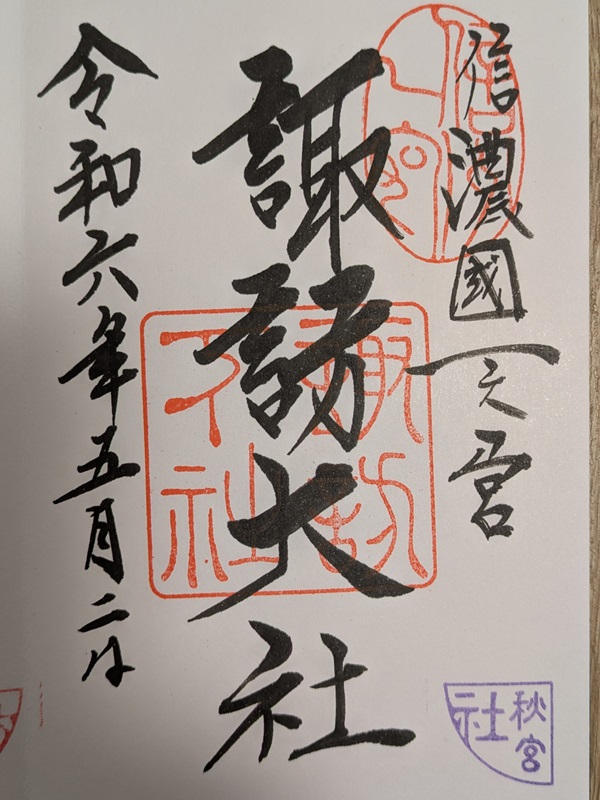 信濃國一之宮
諏訪大社
令和六年五月二日
諏訪
下社
秋宮
社